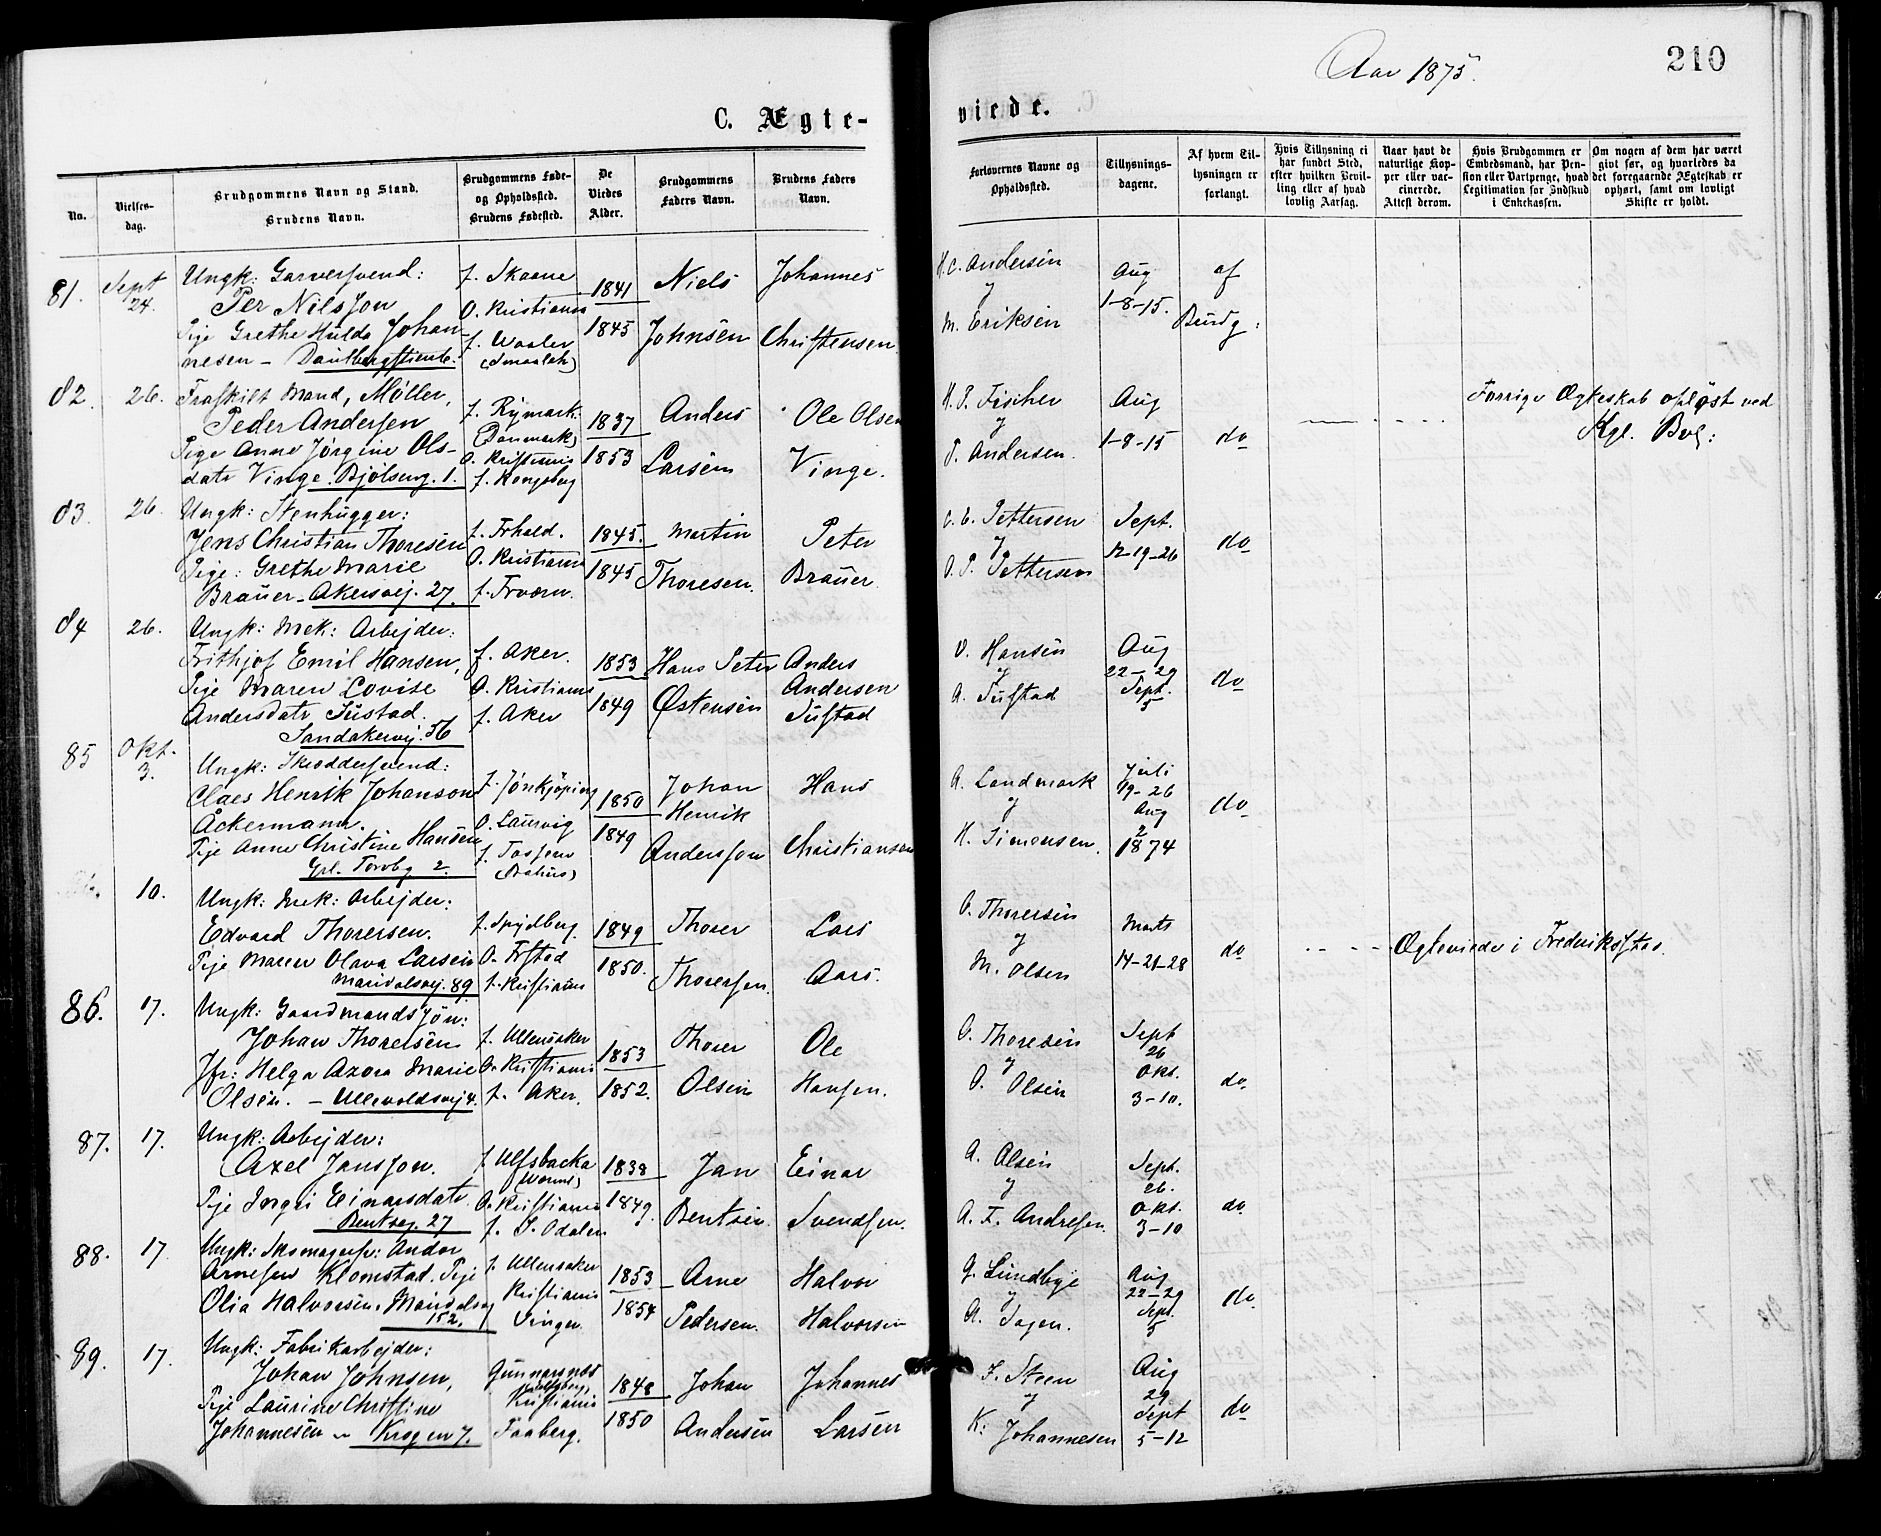 Aar 1875.
210
C. Ægte-
viede.
No.
Vielses-
dag.
Brudgommens Navn og Stand.
Brudens Navn.
Brudgommens Føde-
og Opholdssted.
Brudens Fødested.
De
Viedes
Alder.
Brudgommens
Faders Navn.
Brudens Faders
Navn.
Forlovernes Navne og
Opholdssted.
Tillysnings-
dagene.
Af hvem Til-
lysningen er
forlangt.
Hvis Tillysning ei
har fundet Sted,
efter hvilken Bevil-
ling eller af hvad
lovlig Aarsag.
Naar havt de
naturlige Kop-
per eller vac-
cinerede.
Attest derom.
Hvis Brudgommen er
Embedsmand, har Pen-
sion eller Vartpenge, hvad
Legitimation for Indskud
i Enkekassen.
Om nogen af dem har været
givt før, og hvorledes da
det foregaaende Ægteskab er
ophørt, samt om lovligt
Skifte er holdt.
81.
Sept
24.
Ungk: Garversvend:
Per Nilsson
Pige Grethe Hulda Johan-
nesen -
f. Skaane
O. Kristiania
f. Waaler
(Smaaleh)
1841
1845
Niels
Johnsen
Johannes
Christensen
H.C. Andersen
y
M. Eriksen
Aug
1-8-15.
af
Brudg:
82.
26.
Fraskilt Mand, Møller,
Peder Andersen
Pige Anne Jørgine Ols-
datr Vinge. Bjølseng. 1.
f. Rymark.
(Danmark)
O. Kristiania
f. Kongsberg
1837
1853
Anders
Larsen
Ole Olsen
Vinge.
H. P. Fischer
y
P. Andersen.
Aug
1-8-15
do
Forrige Ægteskab opløst ved
Kgl. Bev:
83.
26.
Ungk: Stenhugger:
Jens Christian Thoresen
Pige: Grethe Marie
Brauer - Akersvej. 27.
f. Frhald.
O. Kristiania
f. Frværn.
1845.
1845
Martin
Thoresen.
Peter
Brauer.
C. C. Pettersen
y
O. P. Pettersen
Sept.
12-19-26
do
84
26.
Ungk: Mek: Arbejder:
Frithjof Emil Hansen,
Pige Maren Lovise
Andersdatr Sustad.
Sandakervej. 56
f. Aker.
O. Kristiania
f. Aker
1853
1849
Hans Peter
Østensen
Anders
Andersen
Sustad
O. Hansen
y
A. Sustad
Aug
22-29
Sept.
5
do
85
Okt.
3.
Ungk: Skræddersvend:
Claes Henrik Johanson
Ackermann.
Pige Anne Christine Hansen
Grl. Torvbg 2.
f. Jønkjöping
O. Laurvig
f. Fossum
(Bahus)
1850
1849
Johan
Henrik
Andersson
Hans
Christiansen
A. Landmark
y
H. Simonsen.
Juli
19-26
Aug
2
1874
do
10.
Ungk: Mek: Arbejder:
Edvard Thorersen.
Pige Maren Olava Larsen
Maridalsvej. 89
f. Spydberg.
O. Frstad
f. Kristiania
1849
1850.
Thorer
Thorersen.
Lars
Aars.
O. Thorersen
y
M. Olsen
Marts
14-21-28
do
Ægteviede i Fredriksstad.
86.
17.
Ungk: Gaardmandssøn:
Johan Thorersen
Jfr: Helga Azora Marie
Olsen. - Ullevoldsvej 4.
f. Ullensaker
O. Kristiania
f. Aker.
1853
1852.
Thorer
Olsen
Ole
Hansen.
O. Thoresen
y
O. Olsen
Sept
26
Okt.
3-10.
do.
87.
17.
Ungk: Arbejder:
Axel Jansson.
Pige Ingri Einarsdatr
Bentseg. 27
f. Ulfsbacka
O. Kristiania
f. S. Odalen
1838
1849.
Jan
Bentsen.
Einar
Svendsen.
A. Olsen
y
A. F. Andresen
Sept.
26.
Okt.
3-10
do.
88.
17.
Ungk: Skomagersv: Andor
Arnesen Klomstad. Pige
Olia Halvorsen, Maridalsvej
152.
f. Ullensaker
Kristiania
Vinger
1853
1854
Arne
Pedersen.
Halvor
Halvorsen
G. Lundbye
y
A. Sagen.
Aug
22-29
Sept.
5
do.
89.
17.
Ungk: Fabrikarbejder:
Johan Johnsen,
Pige Laurine Christine
Johannesen - Krogen 7.
Gunnarsnæs
Kristiania
Faaberg.
1848
1850
Johan
Andersen
Johannes
Larsen
F. Steen
y
K. Johannesen
Aug
29
Sept
5-12
do